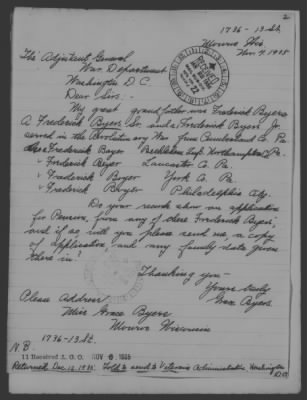 2
1736 - 13 St.
Monroe Wis
Nov. 4, 1935
The Adjutant General
War Department
Washington D.C.
Dear Sirs:-
My great grandfather was Frederick Byers
A Frederick Byers Sr. and a Frederick Byers Jr.
served in the Revolutionary War from Cumberland Co. Pa.
Also Frederick Boyer Bethlehem Twp. Northampton Co. Pa.
" Frederick Boyer Lancaster Co. Pa
" Frederick Boyer York Co. Pa
" Frederick Boyer Philadelphia City.
Do your records show an application
for Pension, from any of these Frederick Byers,
and if so will you please send me a copy
of application, and any family data given
there in?
Thanking you -
Yours truly
Grace Byers.
Please Address
Miss Grace Byers
Monroe Wisconsin
1736-13 St.
N.B.
11 Received A.G.O. NOV 6 1935
Returned Dec. 12, 1935. Told to send to Veterans Administration Washington
RECEIVED